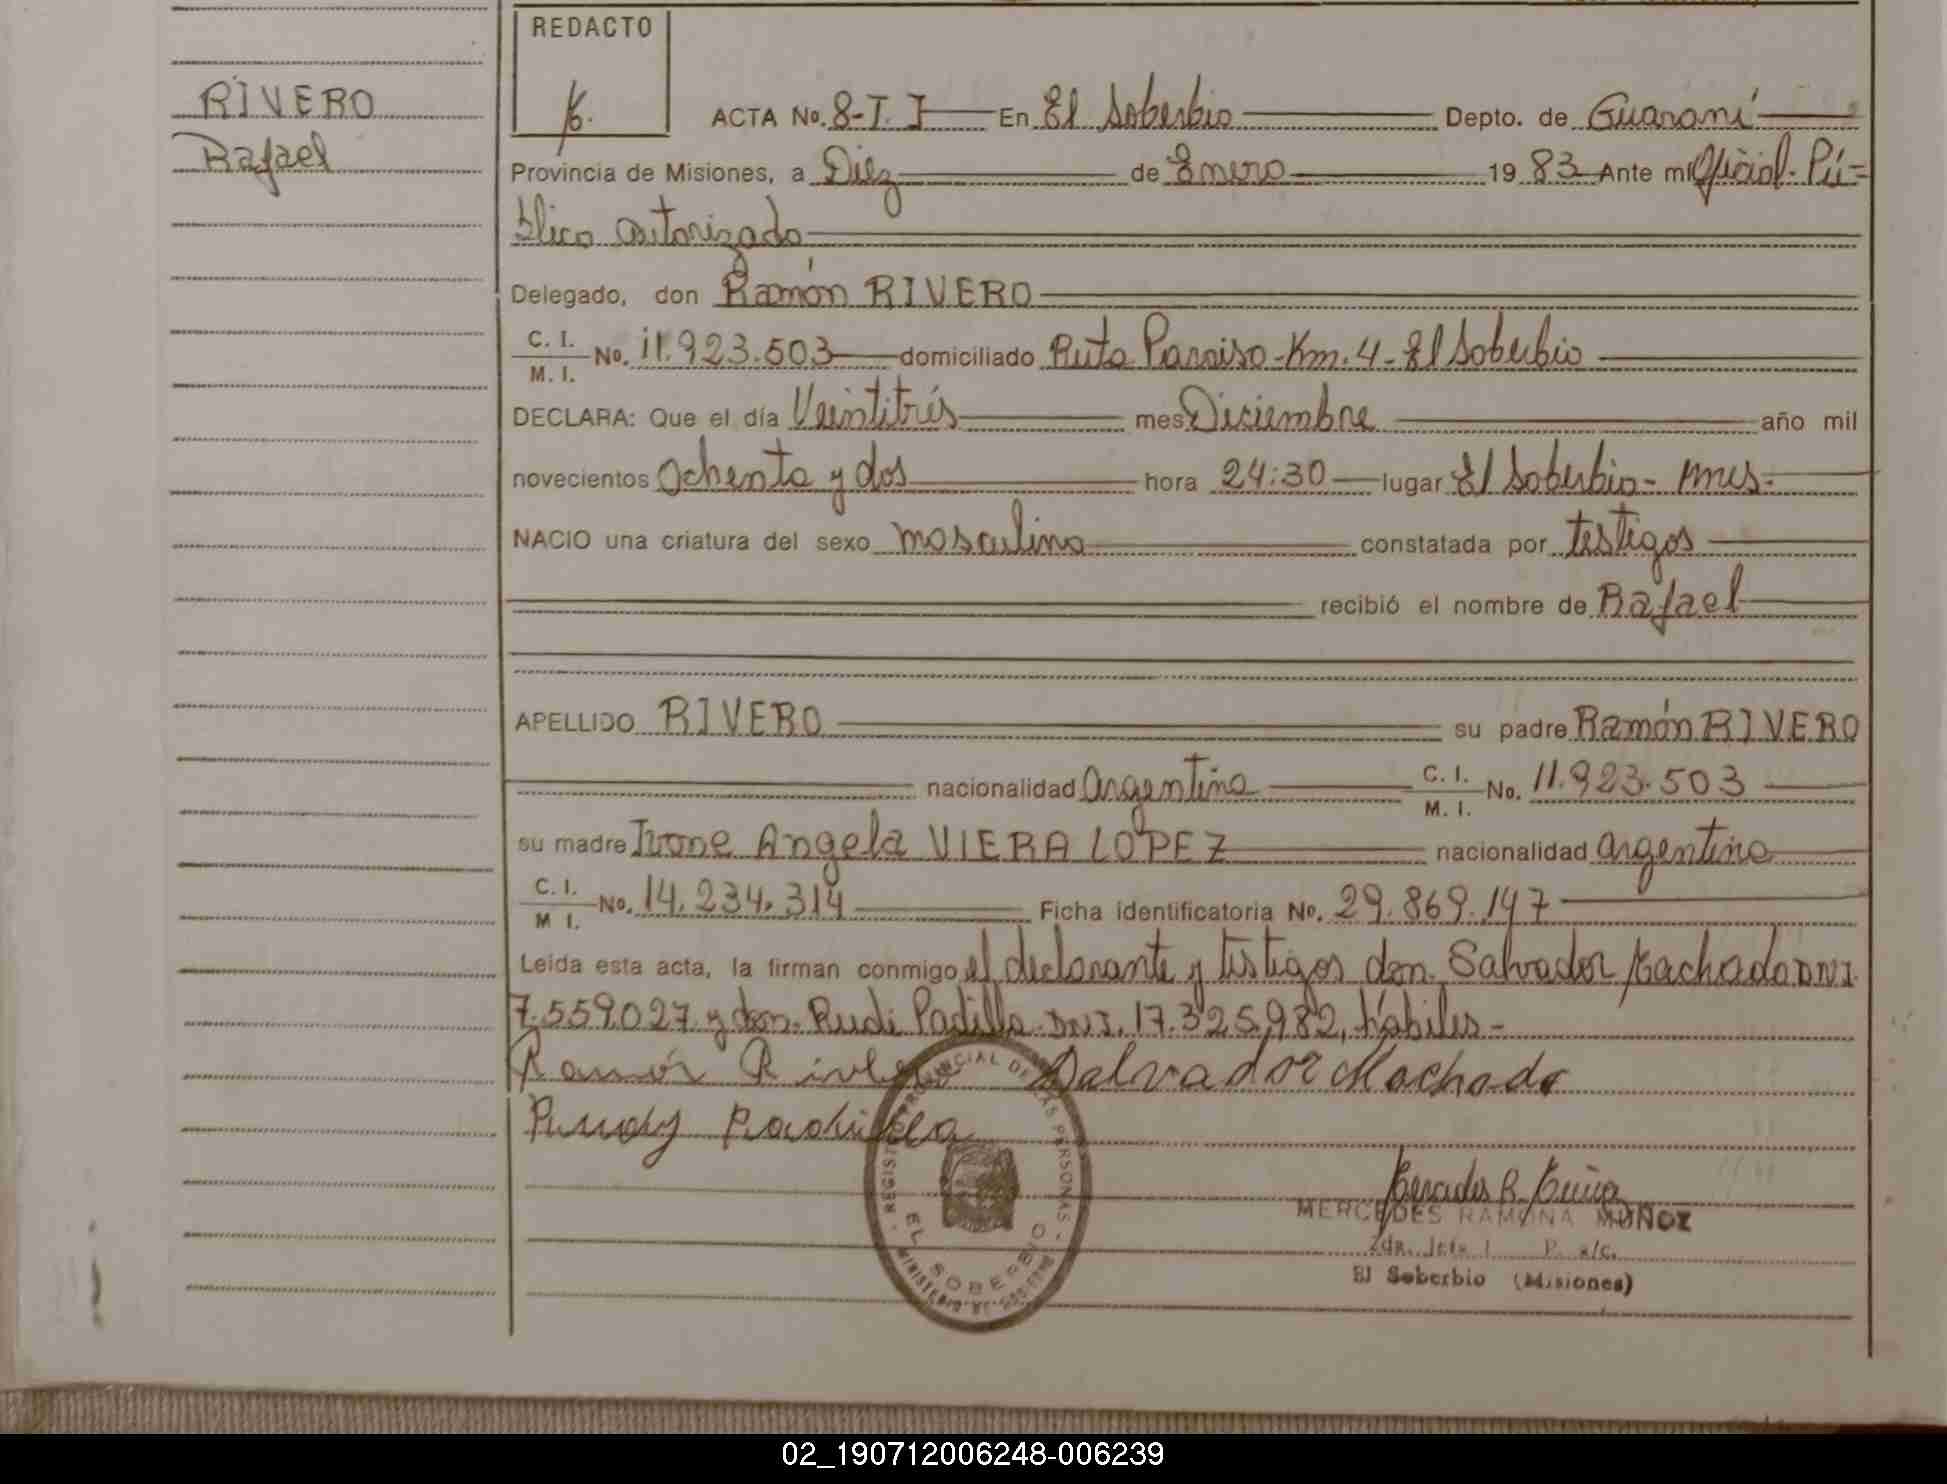 RIVERO
Rafael
REDACTO
ACTA No. 8-T. I En El Soberbio Depto. de Guaraní
Provincia de Misiones, a Diez de Enero 19 83 Ante mi Oficial Pú=
blico autorizado
Delegado, don Ramón RIVERO
C. I. / M. I. No. 11.923.503 domiciliado Ruta Paraiso-Km. 4-El Soberbio
DECLARA: Que el día Veintitrés mes Diciembre año mil
novecientos Ochenta y dos hora 24:30 lugar El Soberbio- Mnes-
NACIO una criatura del sexo masculino constatada por testigos
recibió el nombre de Rafael
APELLIDO RIVERO su padre Ramón RIVERO
nacionalidad argentina C. I. / M. I. No. 11.923.503
su madre Ivone Angela VIERA LOPEZ nacionalidad argentina
C. I. / M I. No. 14.234.314 Ficha identificatoria No. 29.869.147
Leida esta acta, la firman conmigo el declarante y testigos don. Salvador Machado DNI.
7.559.027 y don. Rudi Padilla DNI. 17.325.982, hábiles-
Ramón Rivero Salvador Machado
Rudy Padilla
REGISTRO PROVINCIAL DE LAS PERSONAS -
EL SOBERBIO
MINISTERIO DE GOBIERNO
MERCEDES RAMONA MUÑOZ
El Soberbio (Misiones)
02_190712006248-006239